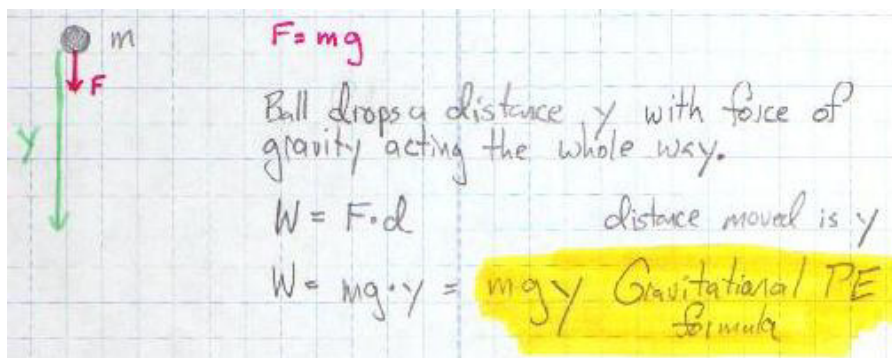 m F=mg
F
Ball drops a distance y with force of
y gravity acting the whole way.
W = F·d distance moved is y
W = mg·y = mgy Gravitational PE
formula